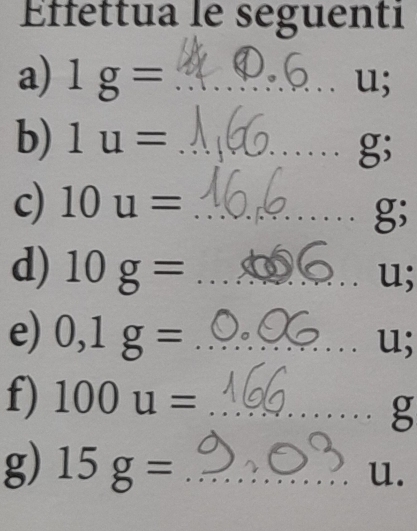 Effettua le seguenti
a) 1 g = 0.6 u;
b) 1 u = 1,66 g;
c) 10 u = 16,6 g;
d) 10 g = 6 u;
e) 0,1 g = 0.06 u;
f) 100 u = 166 g
g) 15 g = 9.03 u.